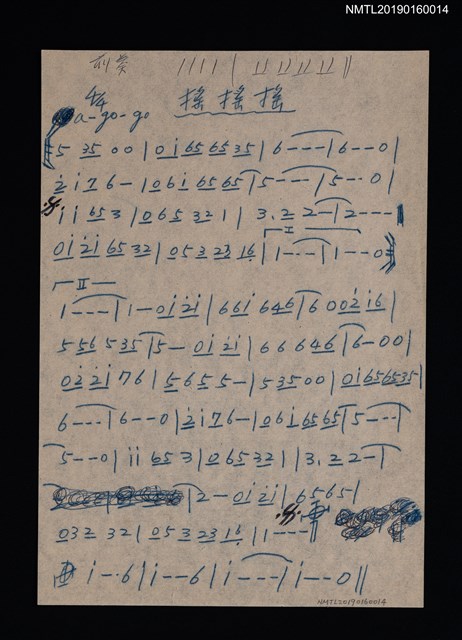 NMTL20190160014
前奏 //// | 11 11 11 11 ||
4/4 搖搖搖
a-go-go
5 35 00 | 0i 65 65 35 | 6--- | 6--0 |
2i76- | 06i 65 65 | 5--- | 5-·0 |
ii 65 3 | 065 32 1 | 3. 2 2- | 2---
0i 2i 65 32 | 05 3 23 16 | 1--- | 1--0
I
II
1--- | 1-0i 2i | 66i 646 | 6 00 2 i6 |
5 56 5 35 | 5- 0i 2i | 66 646 | 6-00 |
02 2i 76 | 5655- | 53500 | 0i656535 |
6--- | 6--0 | 2i76- | 06i 65 65 | 5--- |
5--0 | ii 65 3 | 065 32 1 | 3. 2 2- |
2-0i2i | 6565 |
032 32 | 05 3 23 16 | 1--- ||
i-·6 | i--6 | i--- | i--0 ||
NMTL20190160014